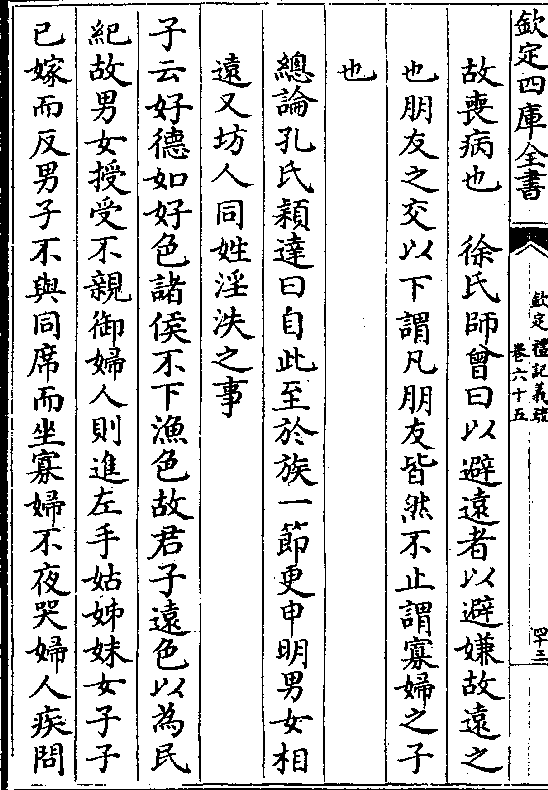 欽定四庫全書
欽定禮記義疏
卷六十五
四十三
故喪病也　徐氏師曾曰以避遠者以避嫌故遠之
也朋友之交以下謂凡朋友皆然不止謂寡婦之子
也
總論孔氏穎達曰自此至於族一節更申明男女相
遠又坊人同姓淫泆之事
子云好德如好色諸侯不下漁色故君子遠色以為民
紀故男女授受不親御婦人則進左手姑姊妹女子子
已嫁而反男子不與同席而坐寡婦不夜哭婦人疾問